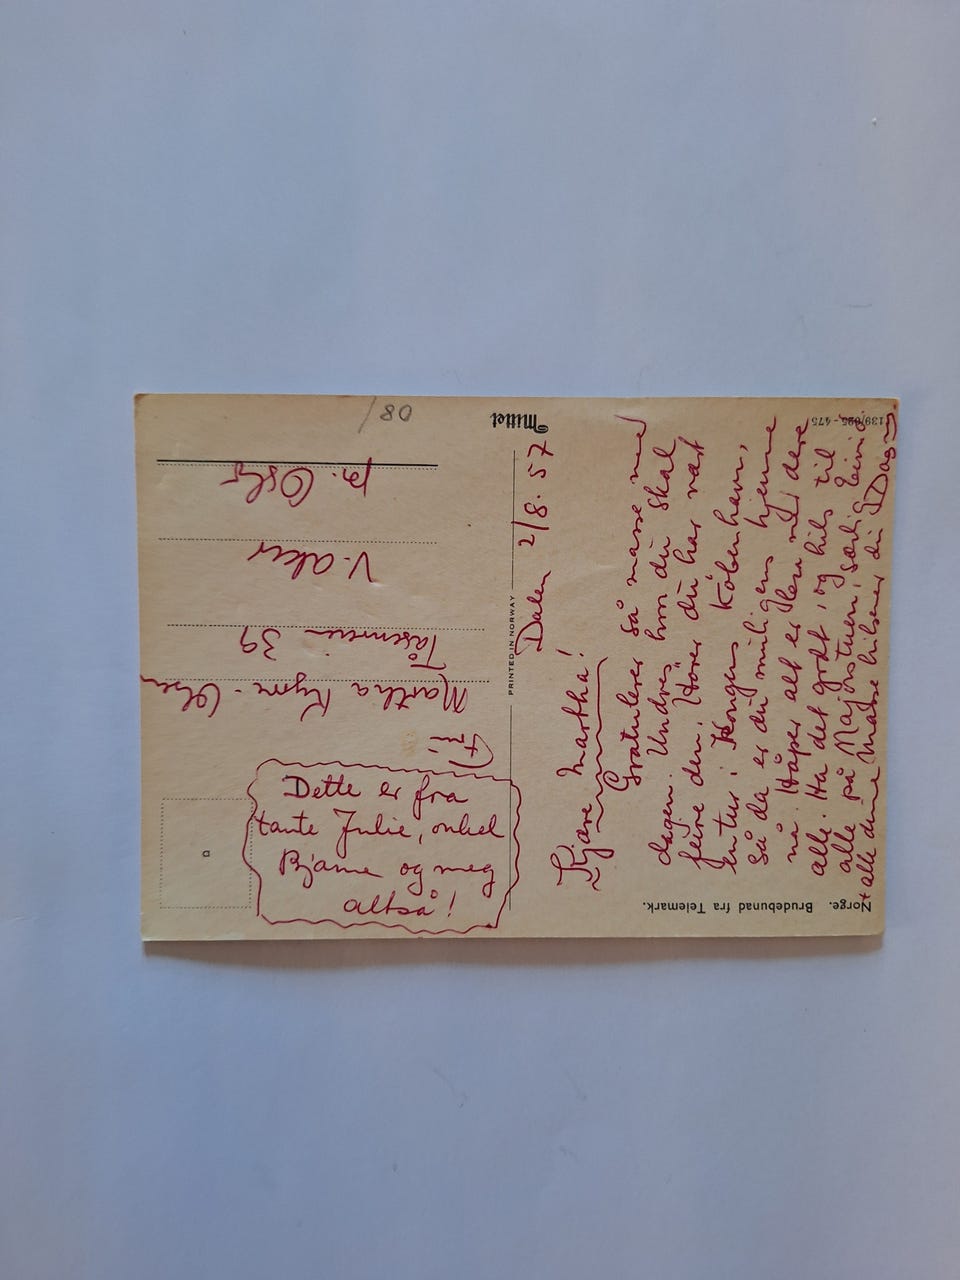 Dalen 2/8.57
Kjære Martha!
Gratulerer så masse med
dagen. Undres hvor du skal
feire den. Hører du har vært
en tur i Kongens København,
så da er du muligens hjemme
nå. Håper alt er vel med dere
alle. Ha det godt, og hils til
alle på Majorstuen, særlig
+ alle dine. Masse hilsener din Dagny
Dette er fra
tante Julie, onkel
Bjarne og meg
altså!
Martha Ryme-Olsen
Tåsenveien 39
V. Aker
p. Oslo
/80
Norge. Brudebunad fra Telemark.
139/625 - 475
PRINTED IN NORWAY
Mittet